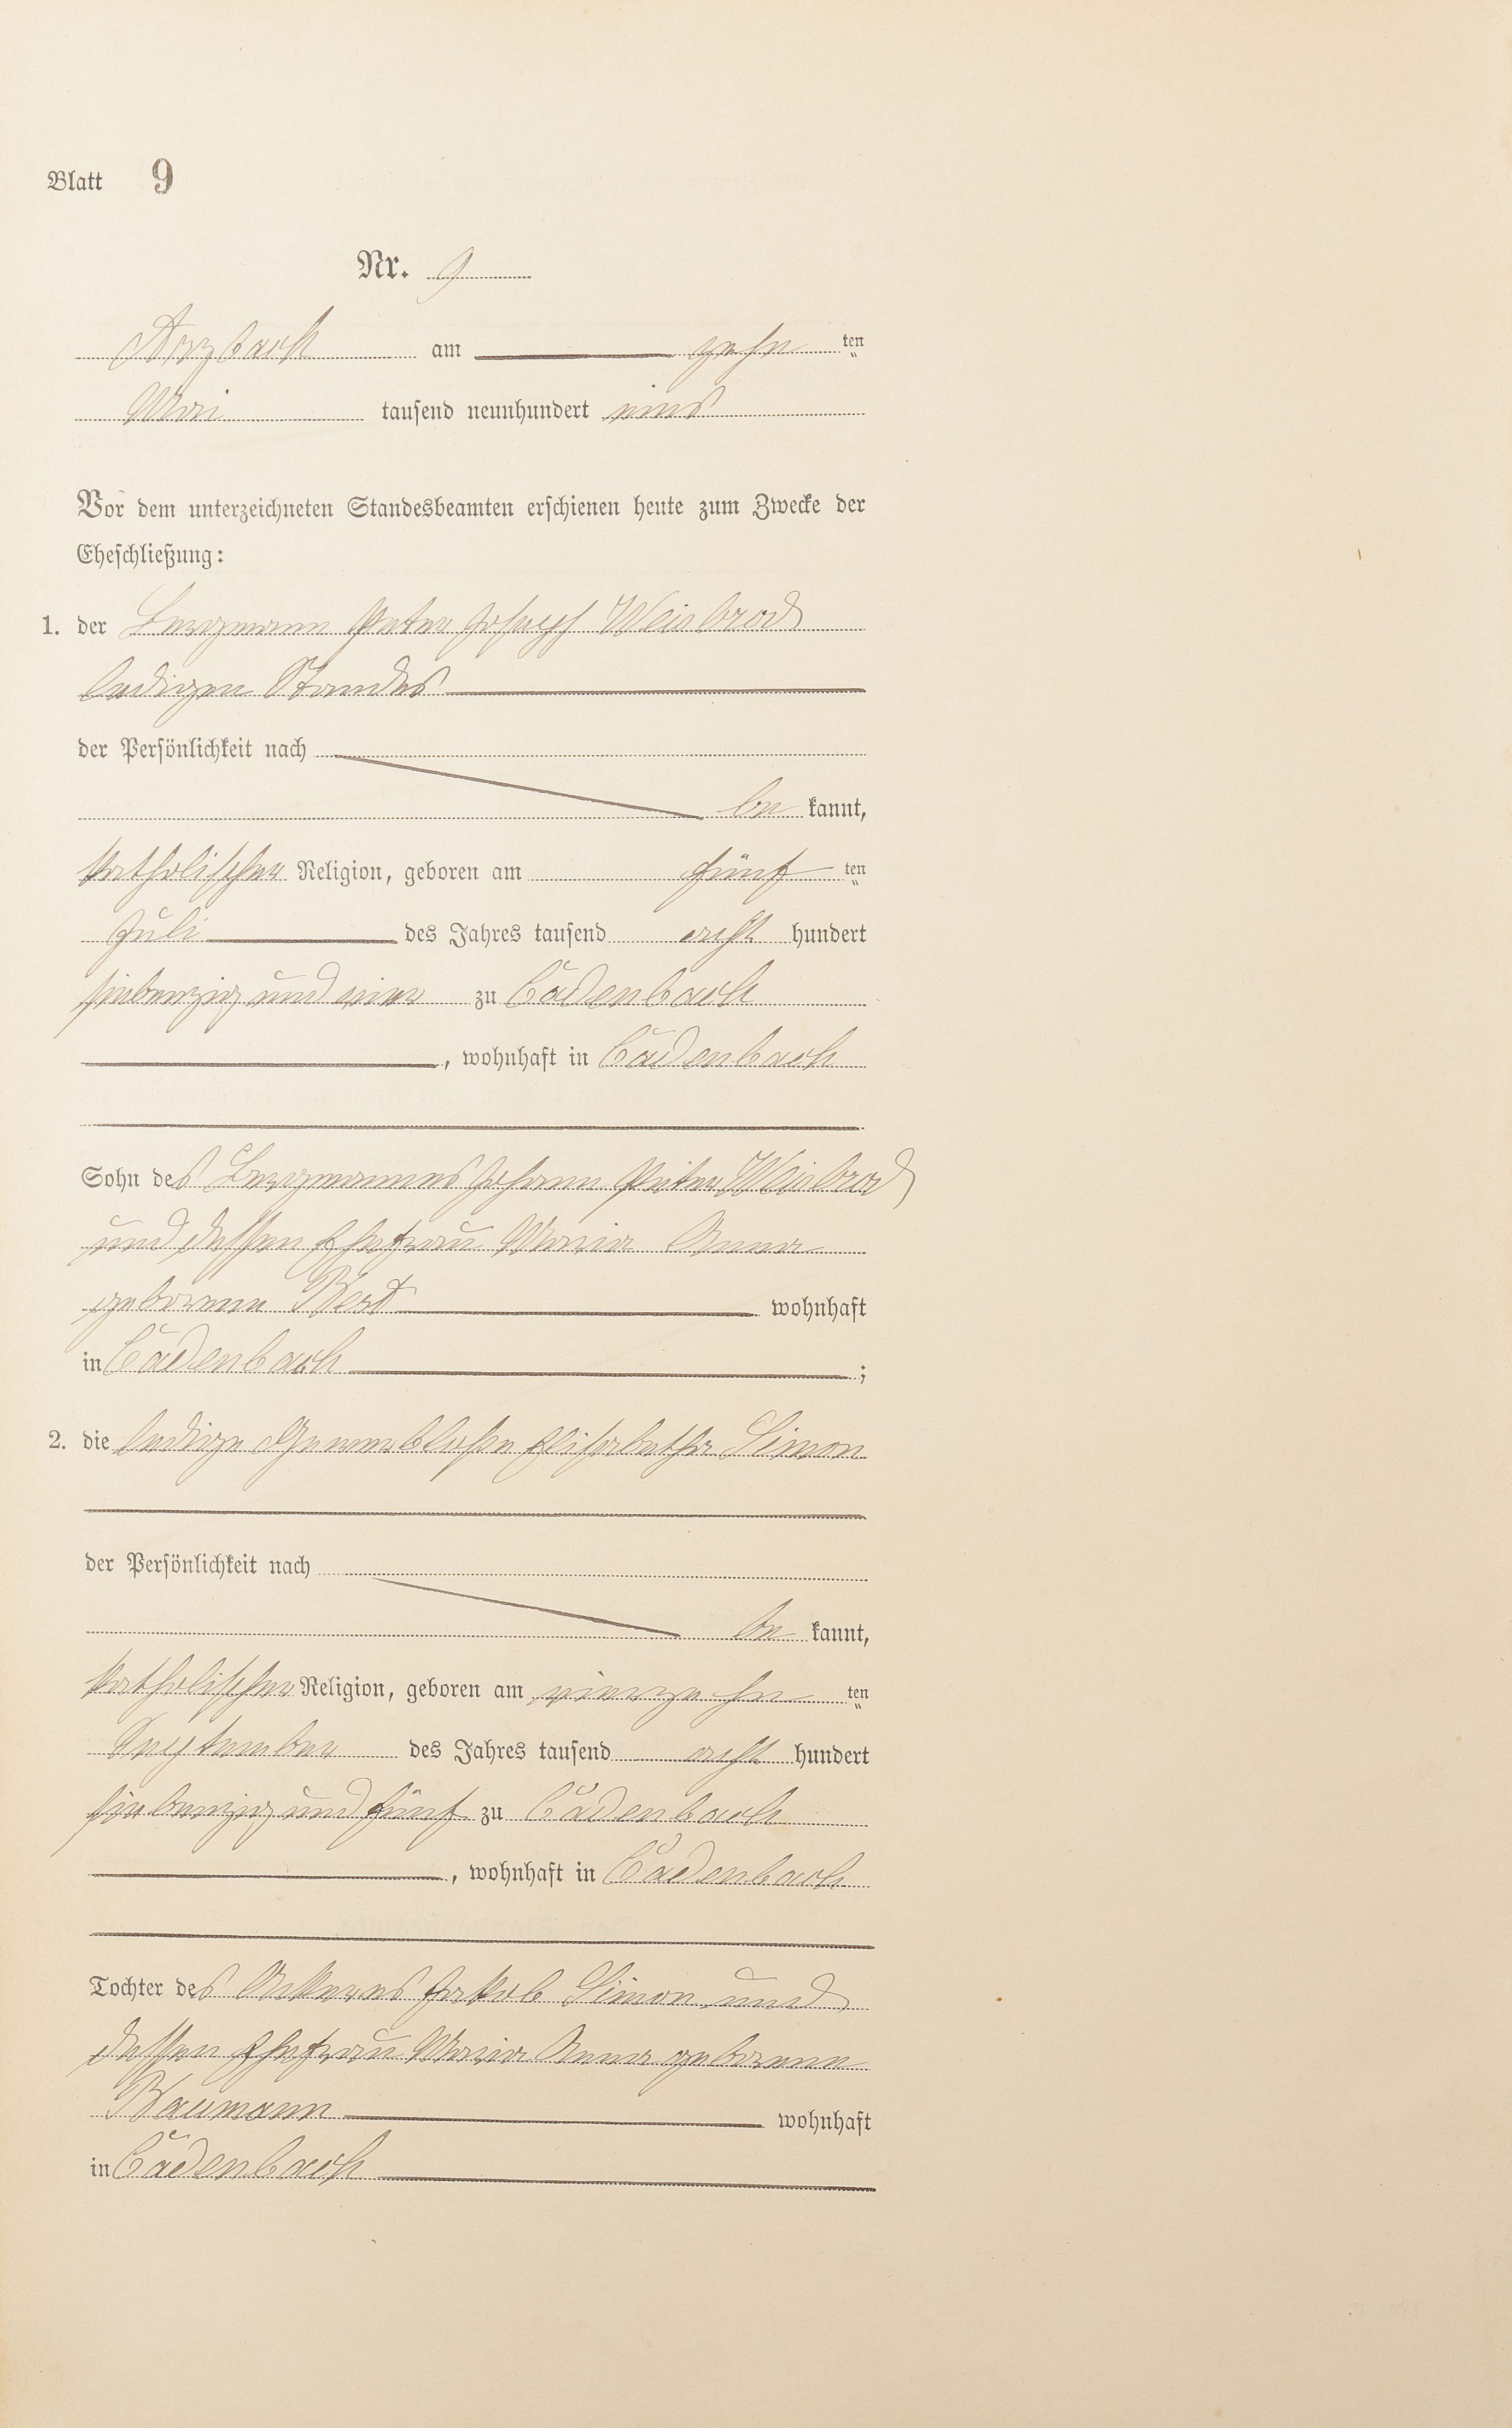 Blatt 9
Nr. 9
Arzbach am zehn ten
Mai tausend neunhundert eins
Vor dem unterzeichneten Standesbeamten erschienen heute zum Zwecke der
Eheschließung:
1. der Bergmann Peter Joseph Weisbrod
ledigen Standes
der Persönlichkeit nach
be kannt,
katholischer Religion, geboren am fünf ten
Juli des Jahres tausend acht hundert
siebenzig und vier zu Cadenbach
, wohnhaft in Cadenbach
Sohn des Bergmannes Johann Peter Weisbrod
und dessen Ehefrau Maria Anna
geborene wohnhaft
in Cadenbach ;
2. die ledige Gewerblose Elisabetha Simon
der Persönlichkeit nach
be kannt,
katholischer Religion, geboren am vierzehn ten
September des Jahres tausend acht hundert
siebenzig und fünf zu Cadenbach
, wohnhaft in Cadenbach
Tochter des Ackerers Jakob Simon und
dessen Ehefrau Maria Anna geborene
Baumann wohnhaft
in Cadenbach